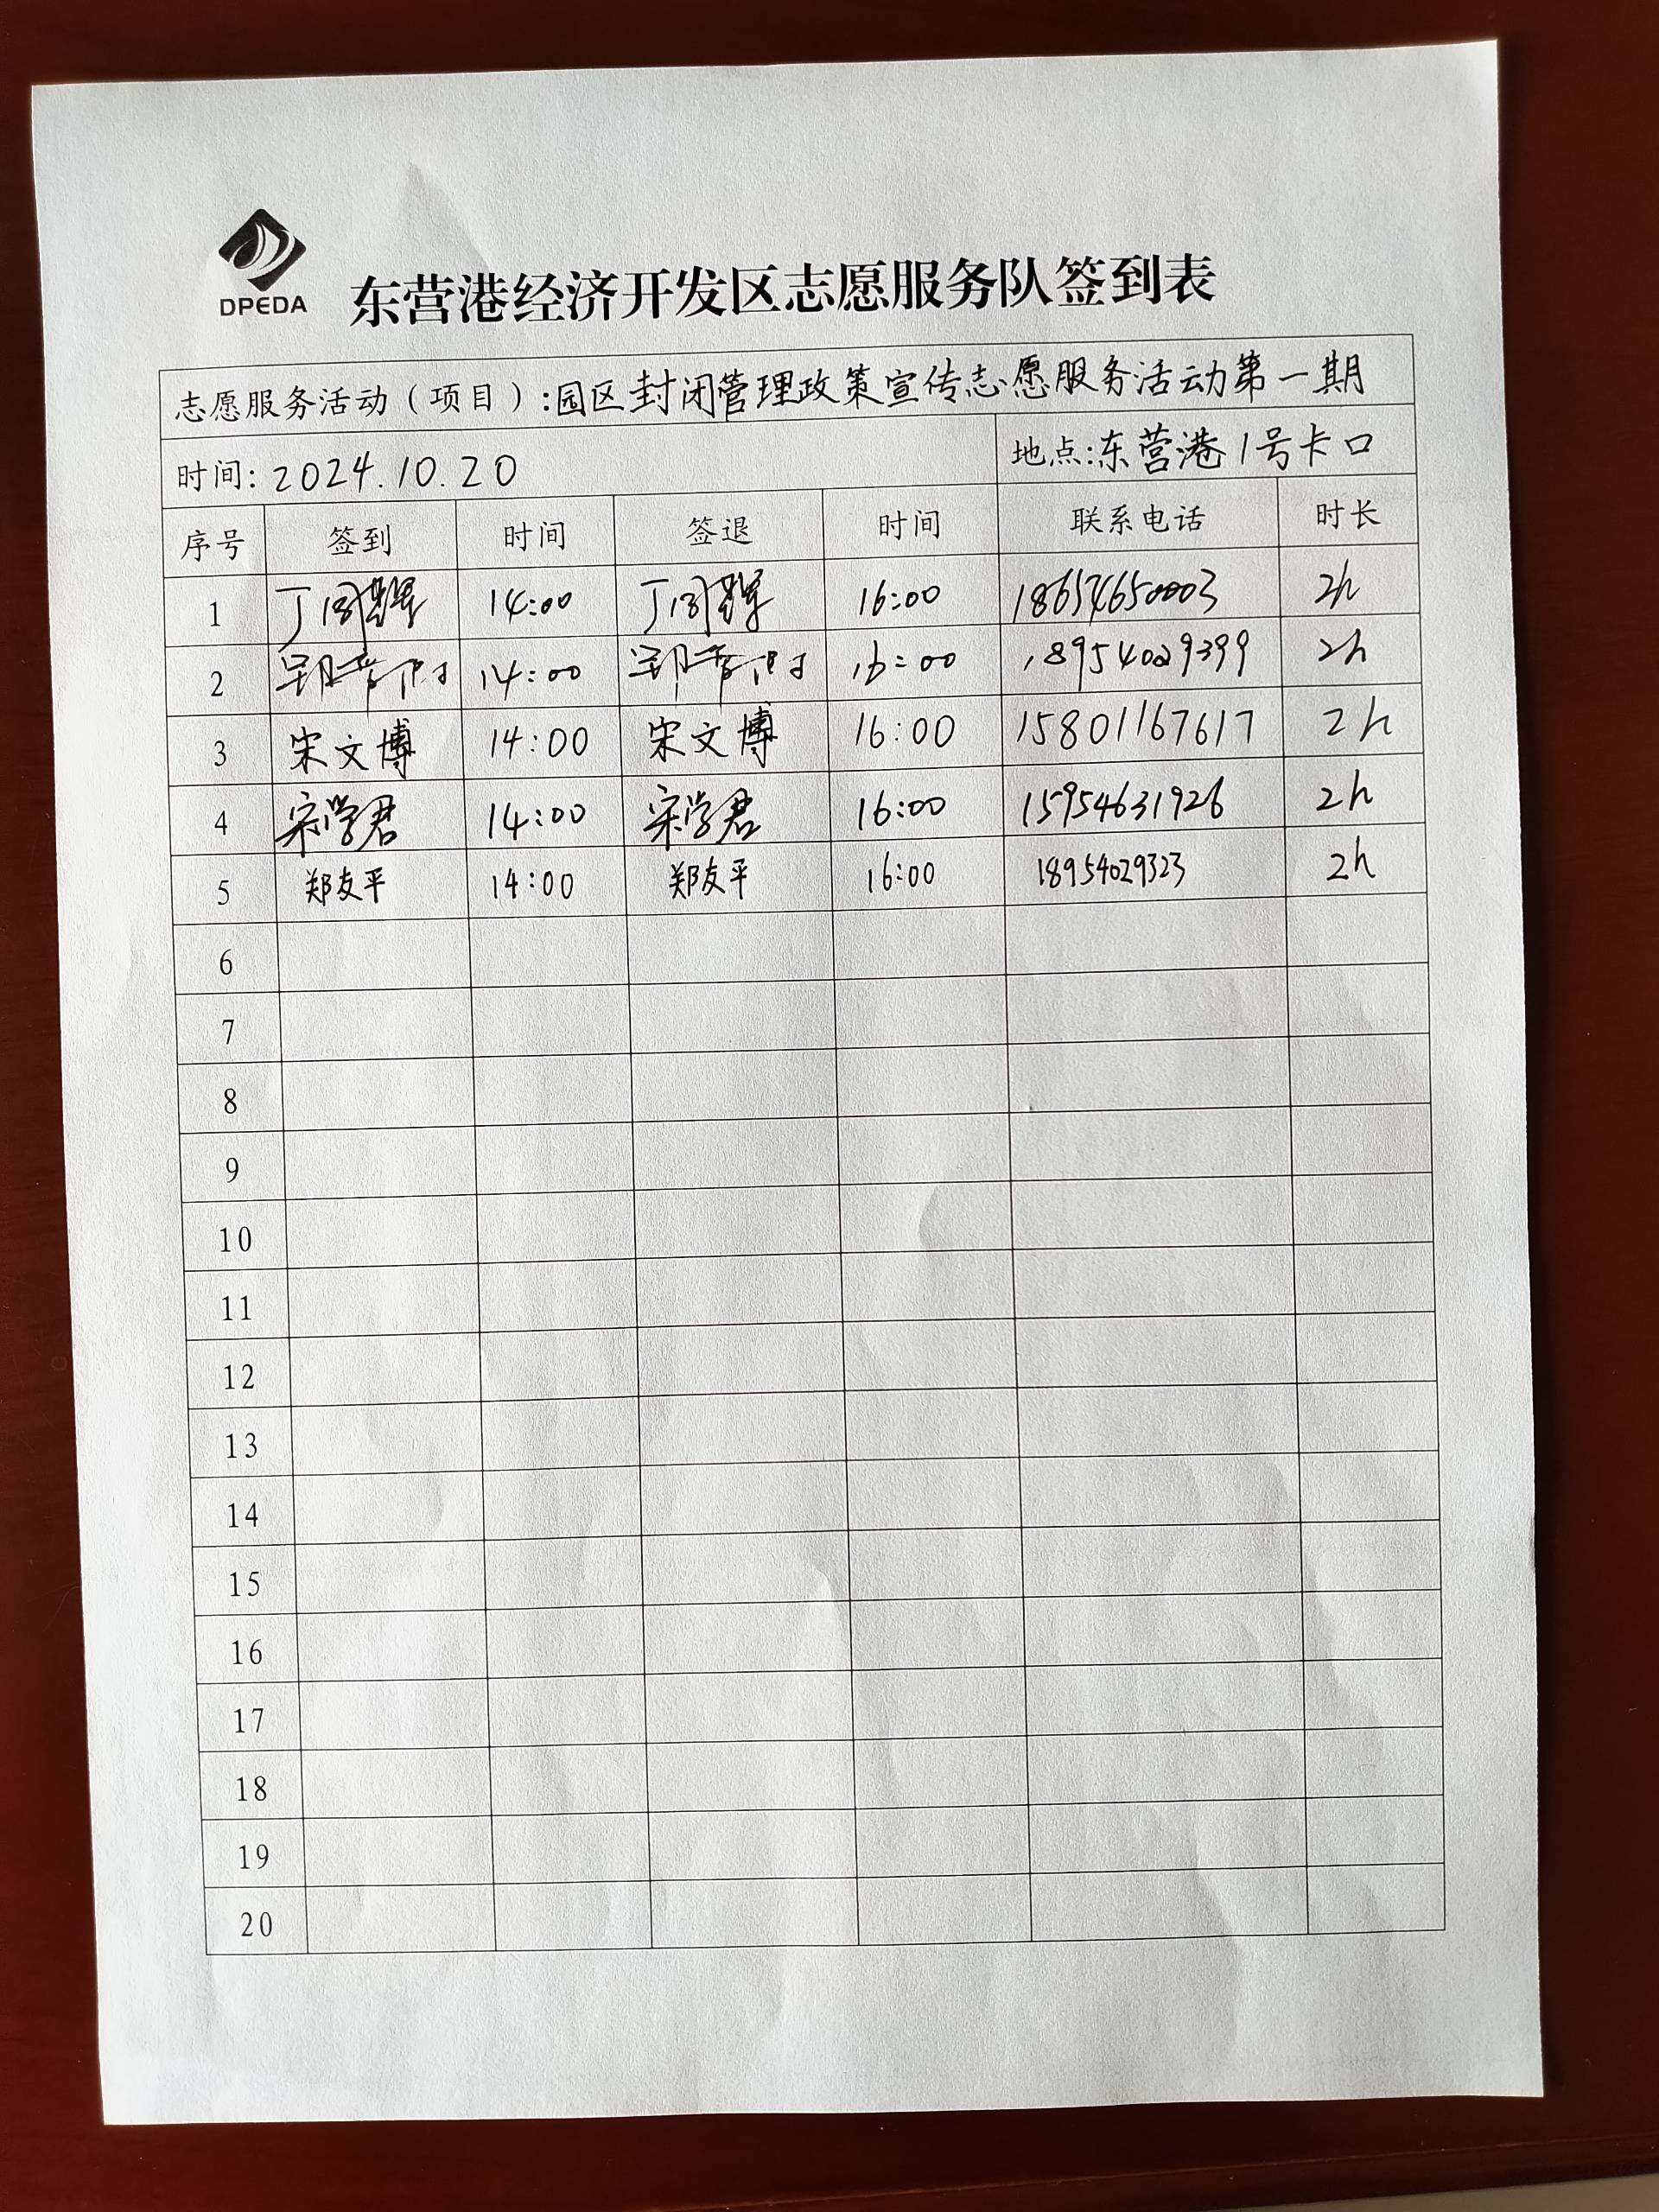 DPEDA
东营港经济开发区志愿服务队签到表
志愿服务活动（项目）:园区封闭管理政策宣传志愿服务活动第一期
时间: 2024.10.20 地点:东营港1号卡口
序号 签到 时间 签退 时间 联系电话 时长
1 丁 14:00 丁 16:00 18654650003 2h
2 14:00 16:00 18954029399 2h
3 宋文博 14:00 宋文博 16:00 15801167617 2h
4 宋学君 14:00 宋学君 16:00 15954631926 2h
5 郑友平 14:00 郑友平 16:00 18954029323 2h
6
7
8
9
10
11
12
13
14
15
16
17
18
19
20